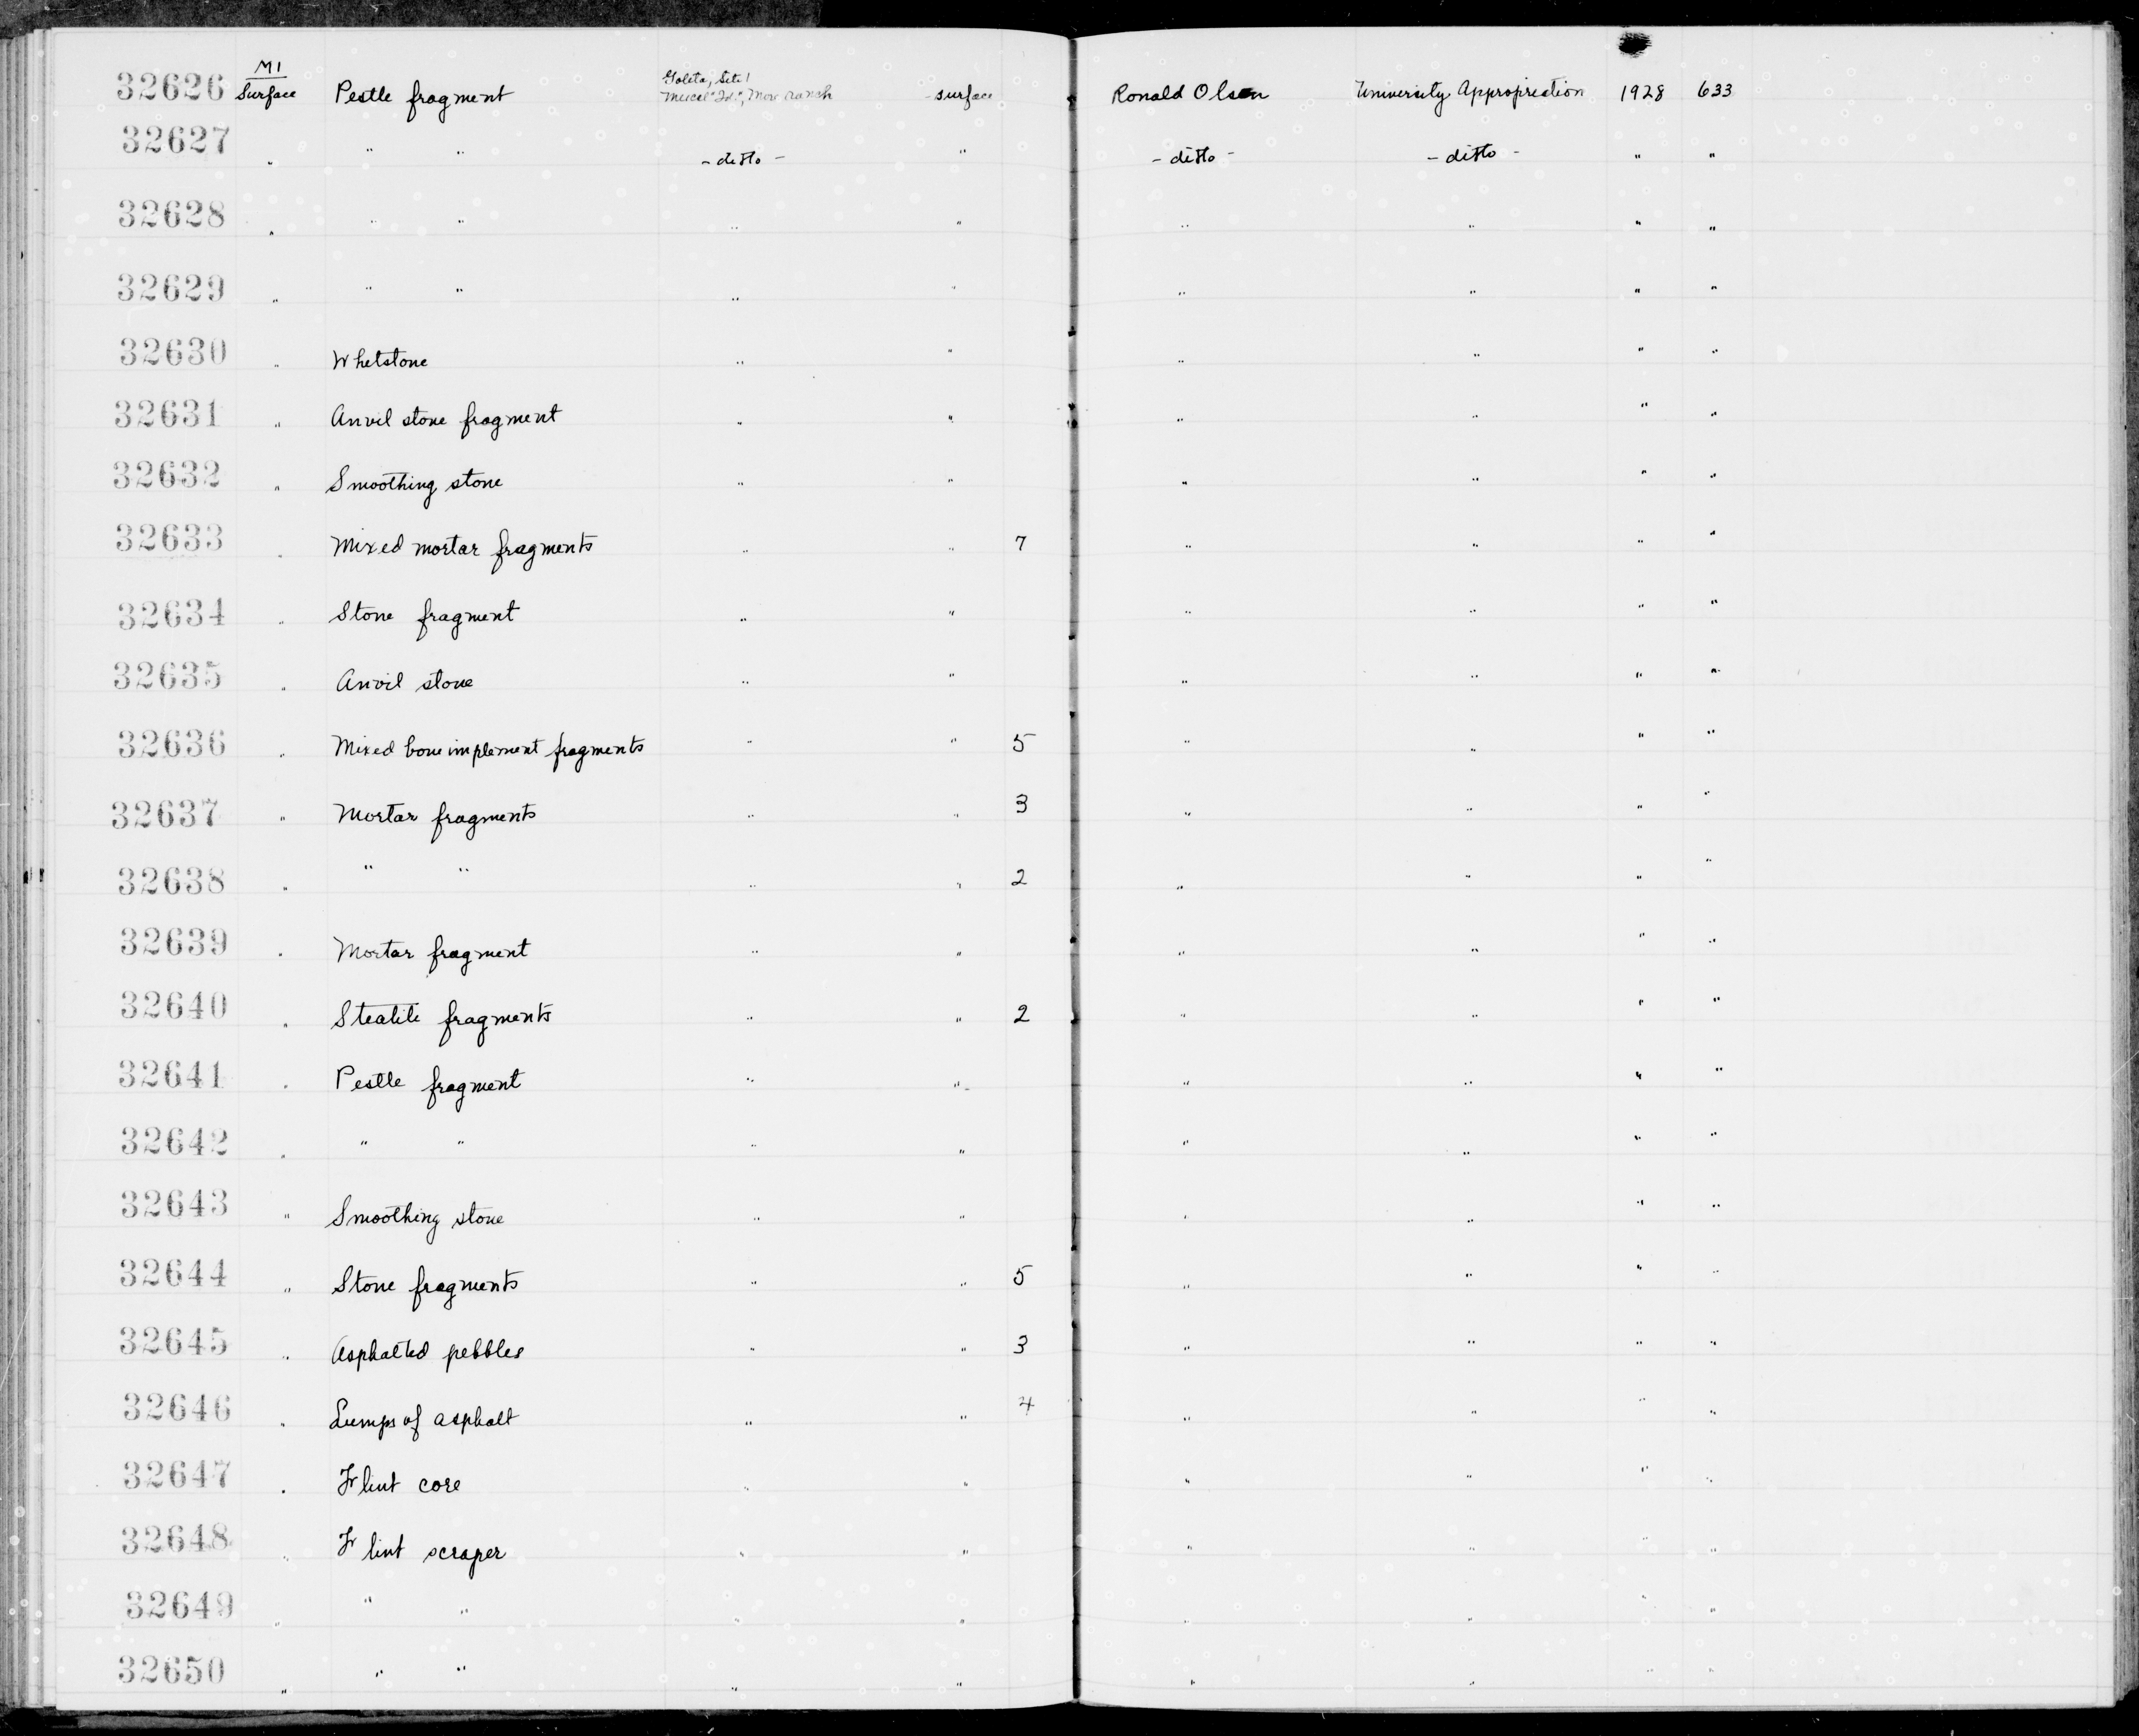 M1
32626 Surface Pestle fragment Goleta, Site 1 surface Ronald Olson University Appropriation 1928 633
Ranch
32627 " " " - ditto - " - ditto - - ditto - " "
32628 " " " " " " " " "
32629 " " " " " " " " "
32630 " Whetstone " " " " " "
32631 " Anvil stone fragment " " " " " "
32632 " Smoothing stone " " " " " "
32633 " Mixed mortar fragments " " 7 " " " "
32634 " Stone fragment " " " " " "
32635 " Anvil stone " " " " " "
32636 " Mixed bone implement fragments " " 5 " " " "
32637 " Mortar fragments " " 3 " " " "
32638 " " " " " 2 " " " "
32639 " Mortar fragment " " " " " "
32640 " Steatite fragments " " 2 " " " "
32641 " Pestle fragment " " " " " "
32642 " " " " " " " " "
32643 " Smoothing stone " " " " " "
32644 " Stone fragments " " 5 " " " "
32645 " Asphalted pebbles " " 3 " " " "
32646 " Lumps of asphalt " " 4 " " " "
32647 " Flint core " " " " " "
32648 " Flint scraper " " " " " "
32649 " " " " " " " " "
32650 " " " " " " " " "